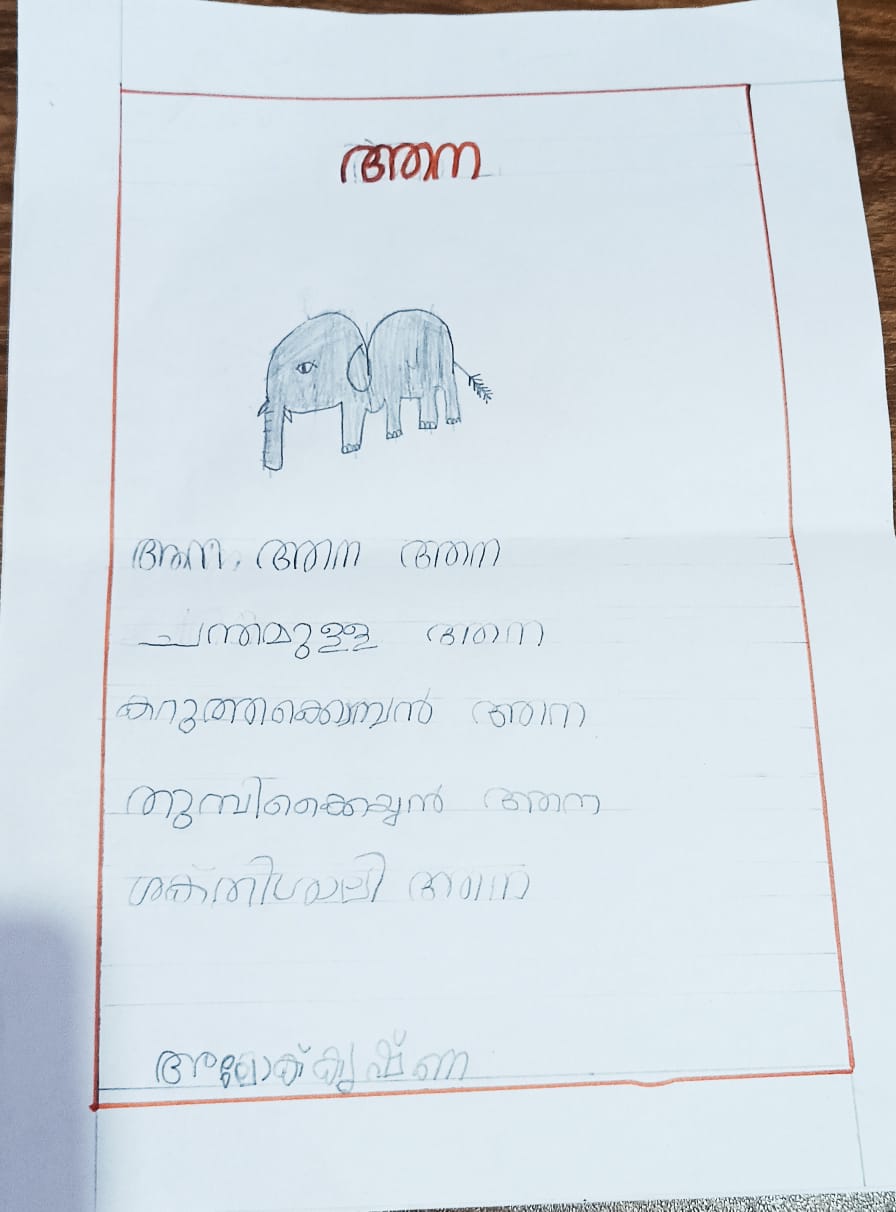 ആന
ആന, ആന ആന
ചന്തമുള്ള ആന
കറുത്തകൊമ്പൻ ആന
തുമ്പികൈയ്യൻ ആന
ശക്തിശാലി ആന
അലോക് കൃഷ്ണ